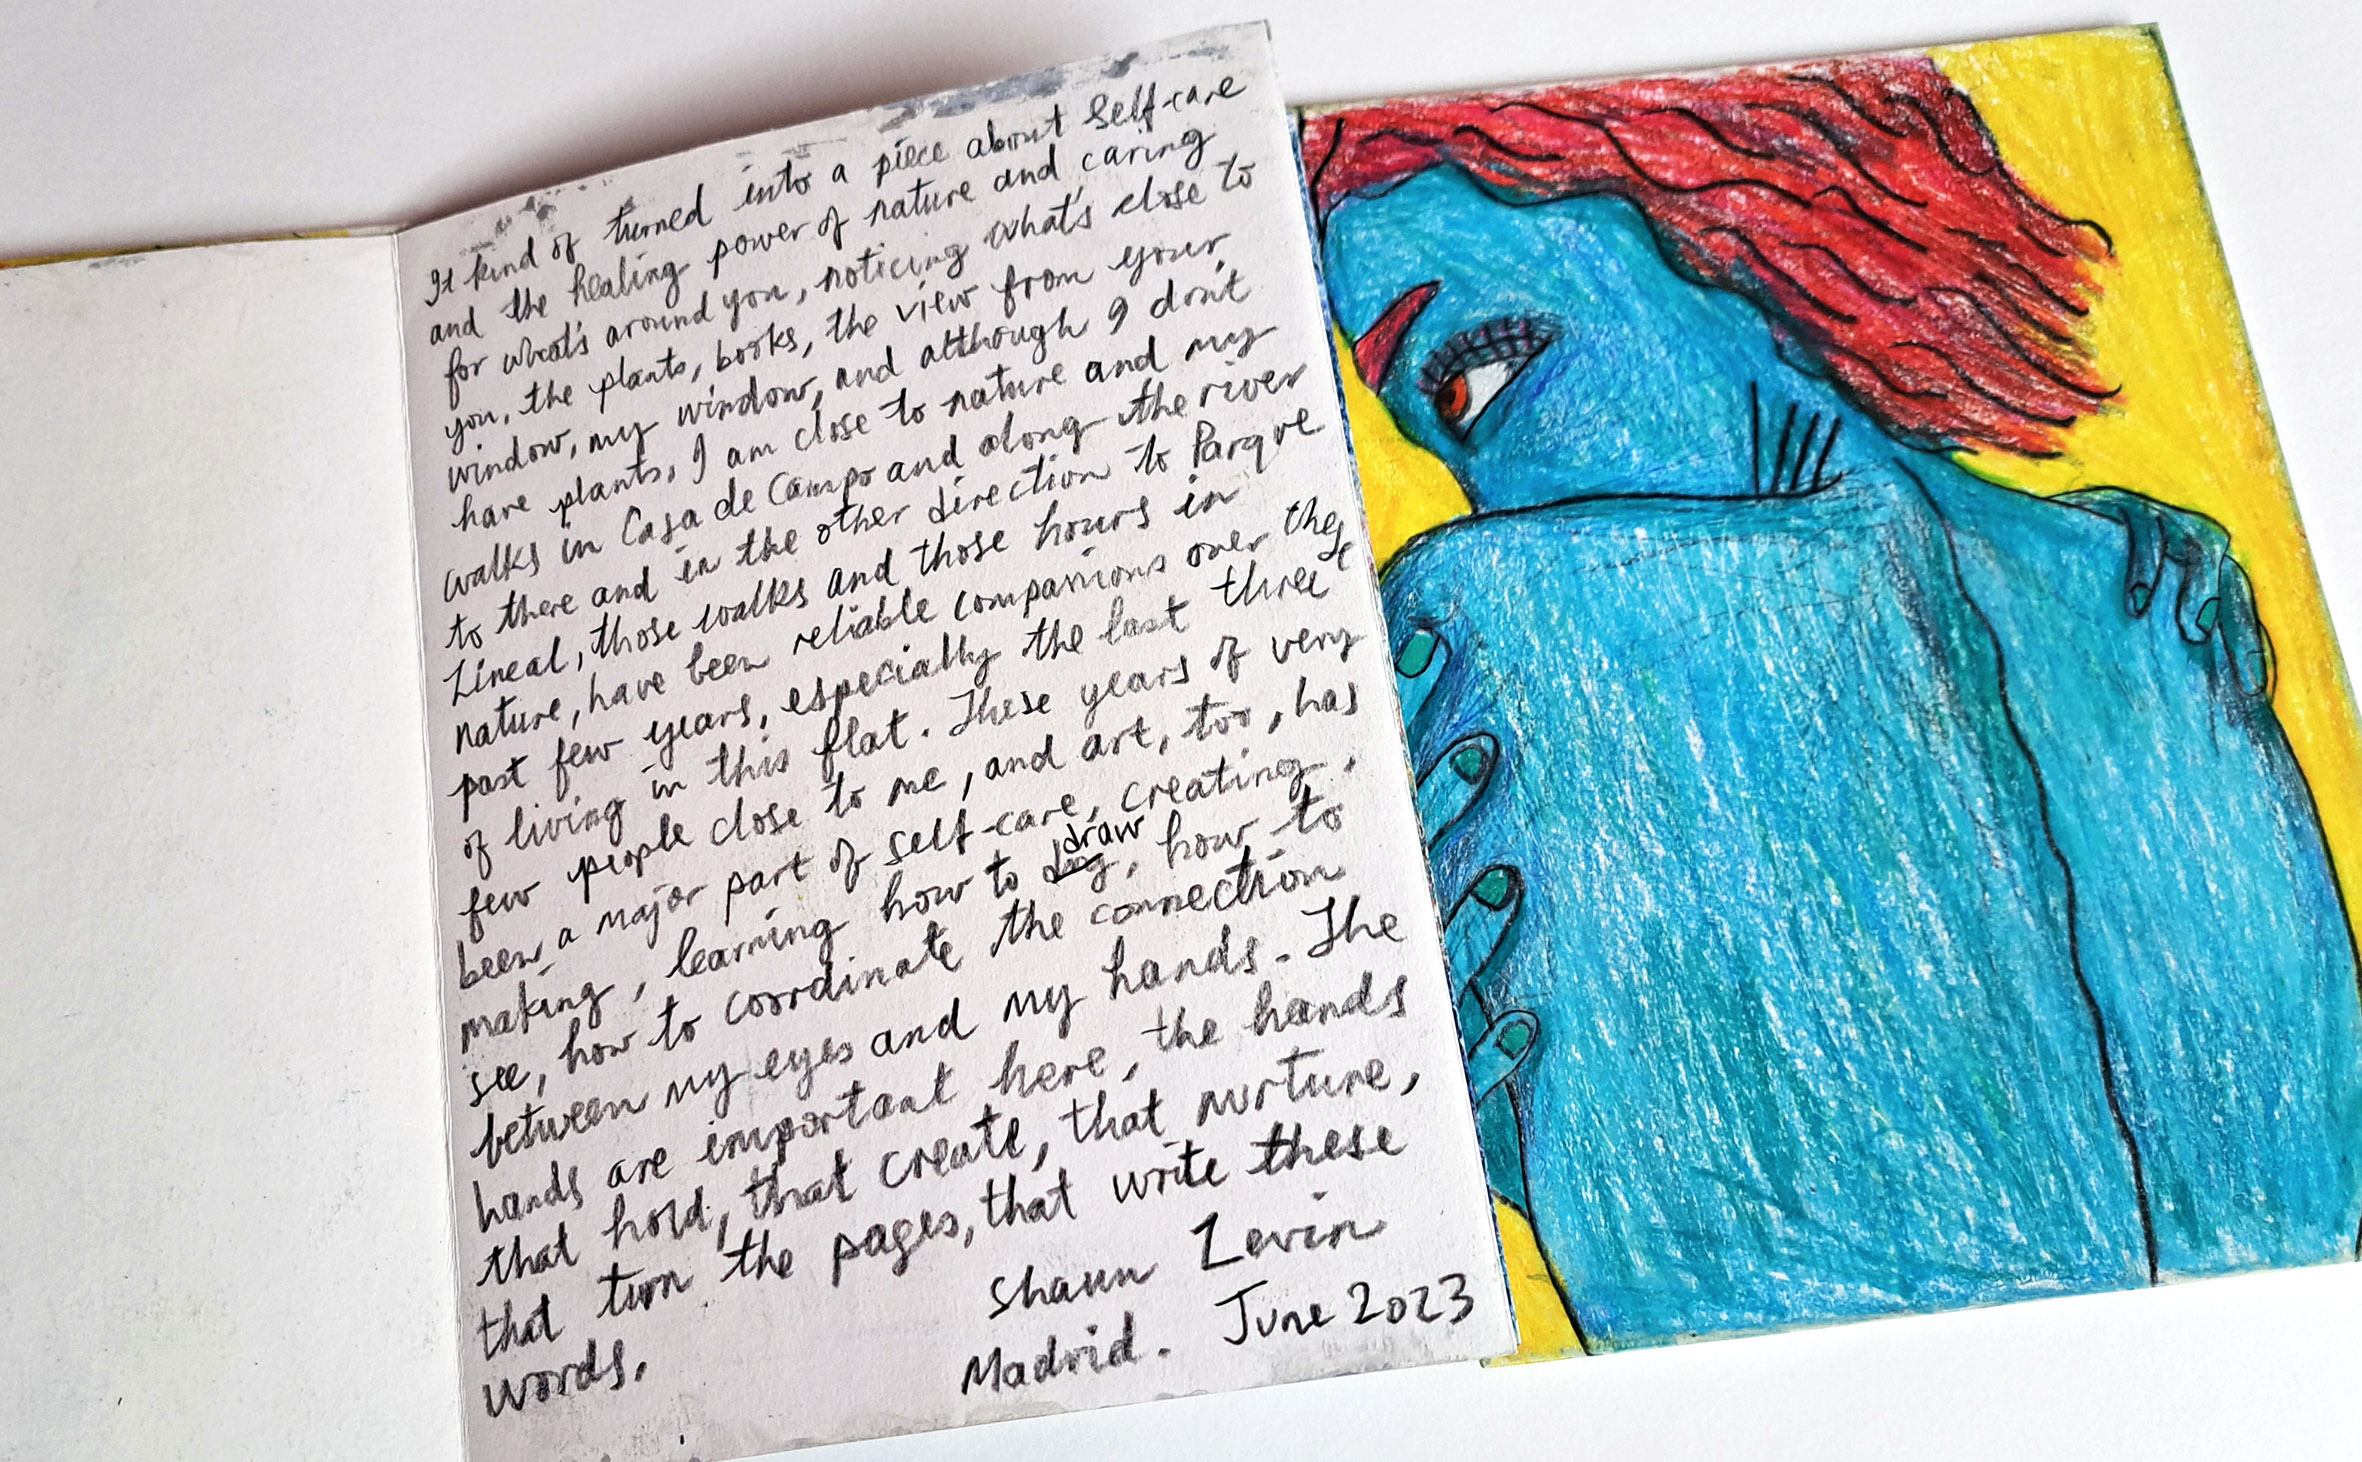 It kind of turned into a piece about self-care
and the healing power of nature and caring
for what's around you, noticing what's close to
you, the plants, books, the view from your
window, my window, and although I don't
have plants, I am close to nature and my
walks in Casa de Campo and along the river
to there and in the other direction to Parque
Lineal, those walks and those hours in
nature, have been reliable companions over these
past few years, especially the last three
of living in this flat. These years of very
few people close to me, and art, too, has
been a major part of self-care, creating,
making, learning how to draw, how to
see, how to coordinate the connection
between my eyes and my hands. The
hands are important here, the hands
that hold, that create, that nurture,
that turn the pages, that write these
words.
Shaun Levin
Madrid. June 2023